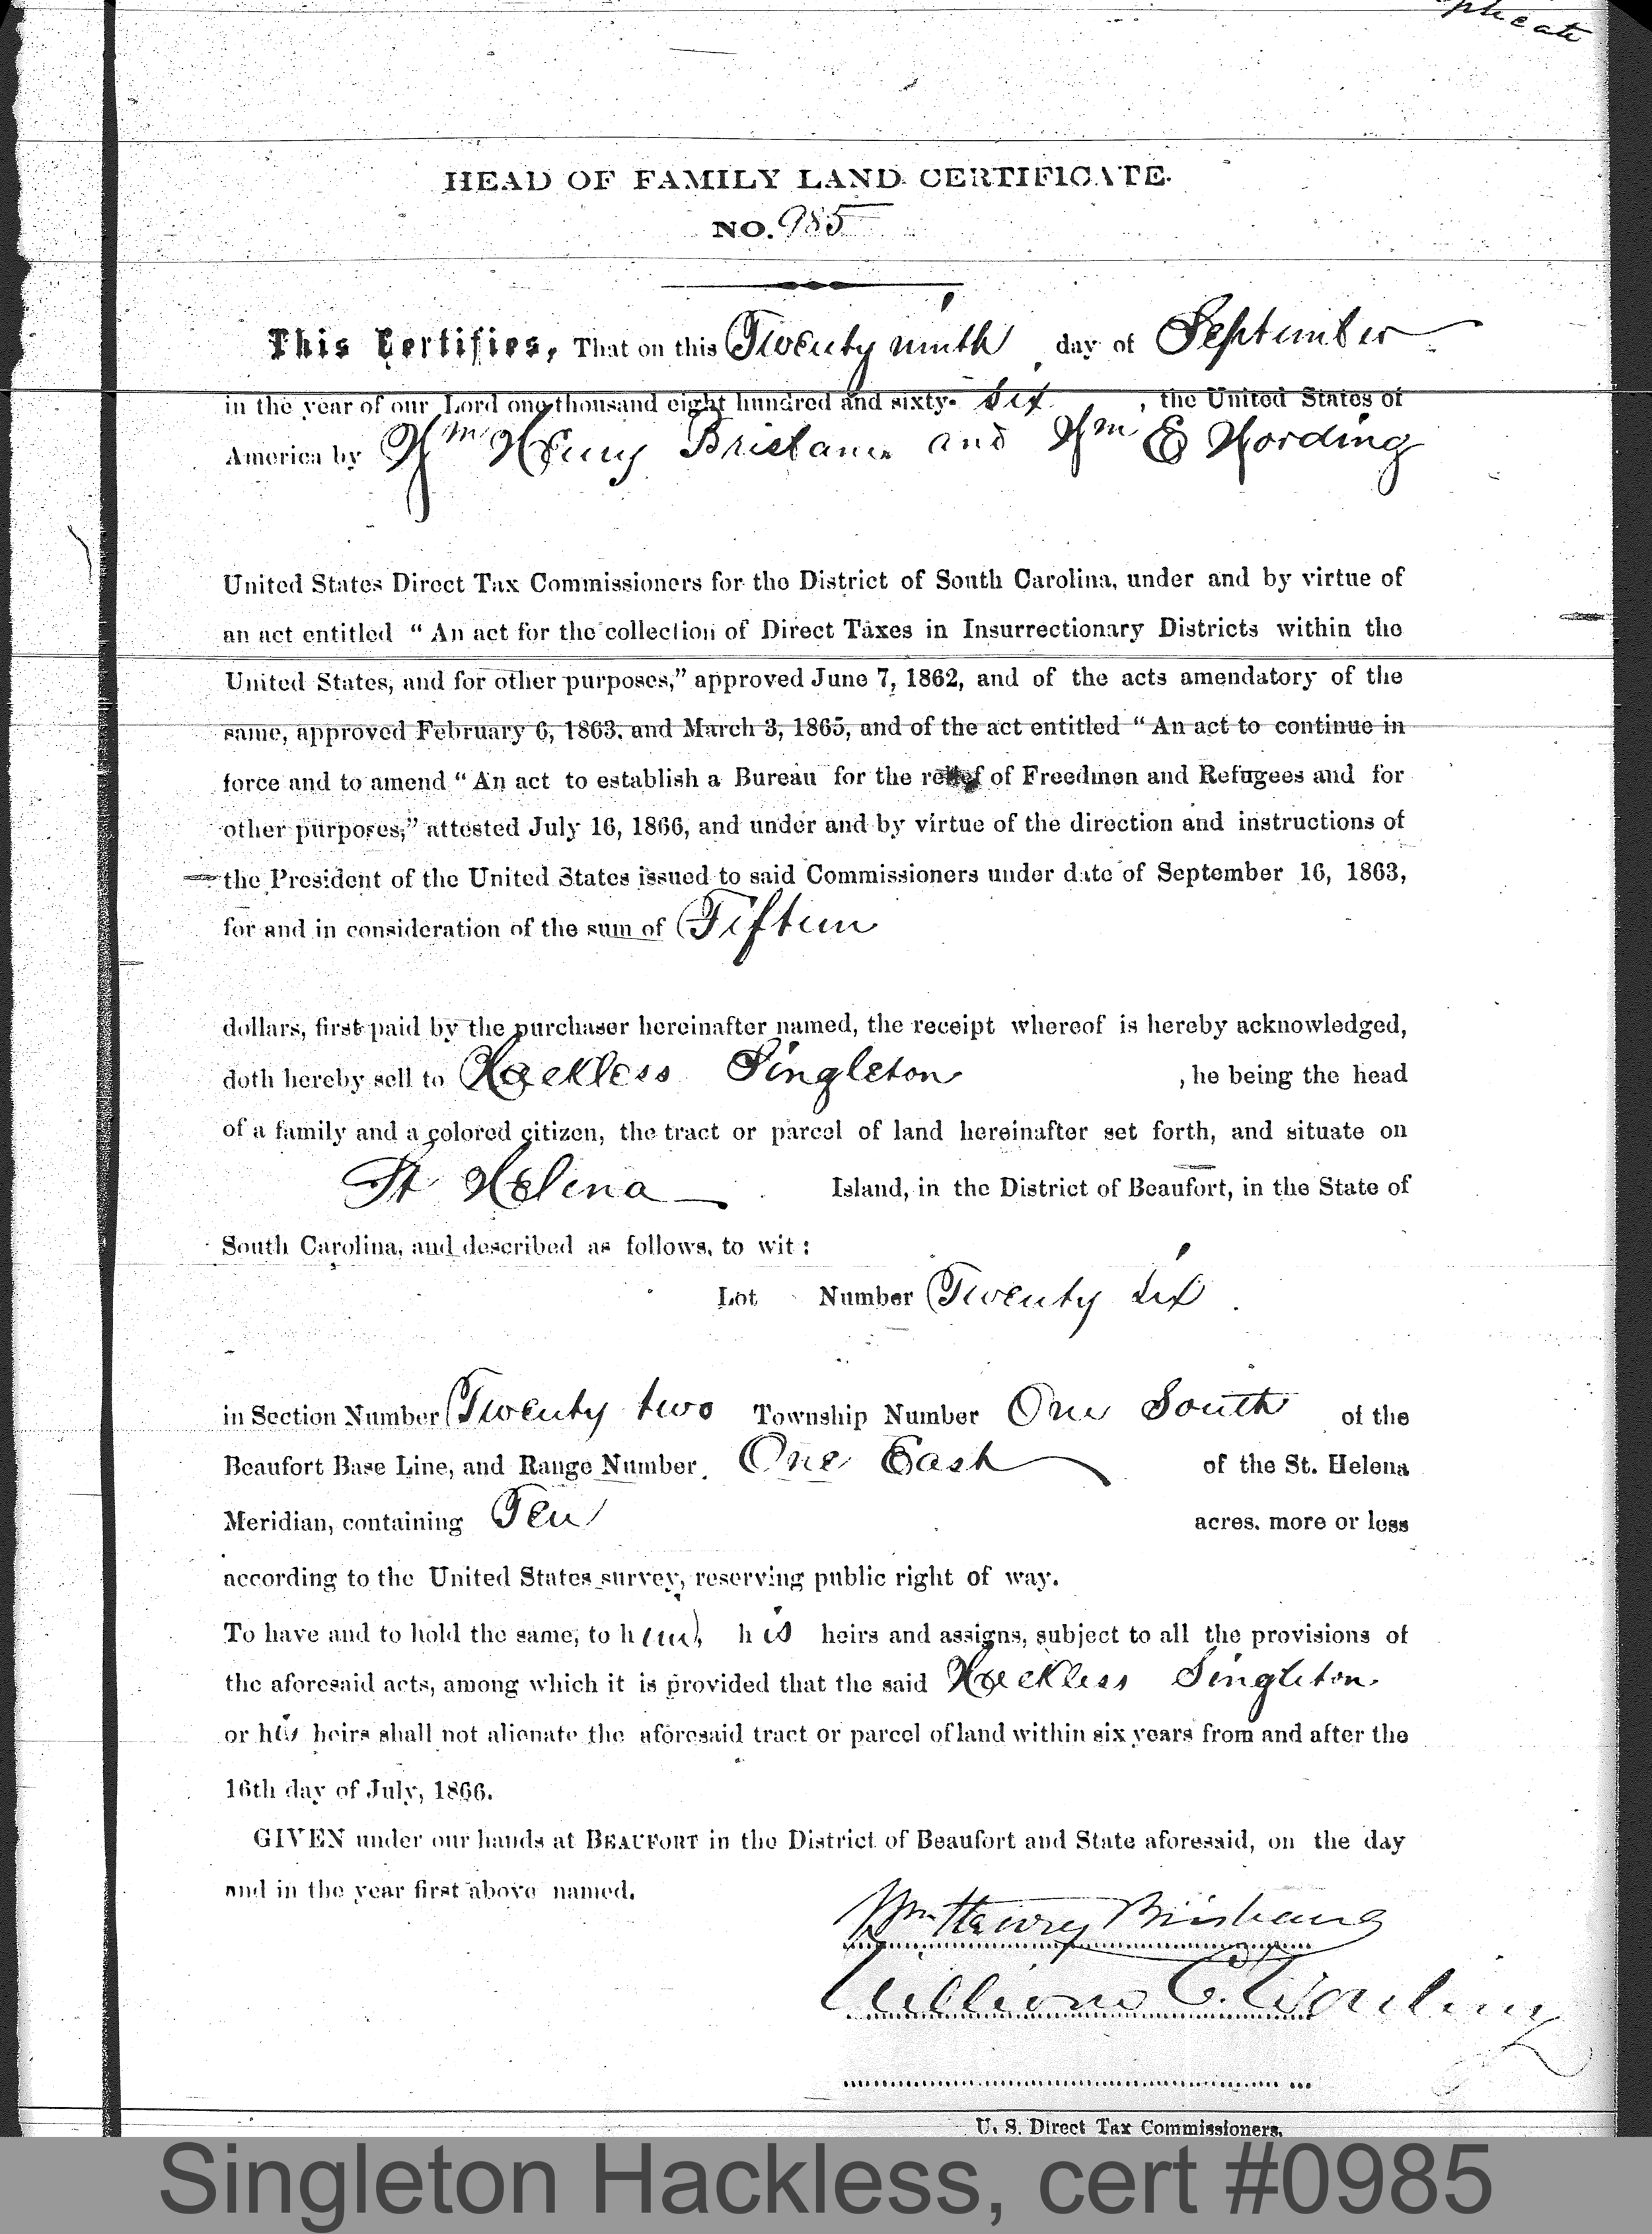 plicate
HEAD OF FAMILY LAND CERTIFICATE.
NO. 985
This Certifies, That on this Twenty ninth day of September
in the year of our Lord one thousand eight hundred and sixty- six, the United States of
America by Wm Henry Brisbane and Wm E Wording
United States Direct Tax Commissioners for the District of South Carolina, under and by virtue of
an act entitled “ An act for the collection of Direct Taxes in Insurrectionary Districts within the
United States, and for other purposes,” approved June 7, 1862, and of the acts amendatory of the
same, approved February 6, 1863, and March 3, 1865, and of the act entitled “ An act to continue in
force and to amend “ An act to establish a Bureau for the relief of Freedmen and Refugees and for
other purposes,” attested July 16, 1866, and under and by virtue of the direction and instructions of
the President of the United States issued to said Commissioners under date of September 16, 1863,
for and in consideration of the sum of Fifteen
dollars, first paid by the purchaser hereinafter named, the receipt whereof is hereby acknowledged,
doth hereby sell to Hackless Singleton , he being the head
of a family and a colored citizen, the tract or parcel of land hereinafter set forth, and situate on
St Helena Island, in the District of Beaufort, in the State of
South Carolina, and described as follows, to wit :
Lot Number Twenty six
in Section Number Twenty two Township Number One South of the
Beaufort Base Line, and Range Number One East of the St. Helena
Meridian, containing Ten acres, more or less
according to the United States survey, reserving public right of way.
To have and to hold the same, to him, his heirs and assigns, subject to all the provisions of
the aforesaid acts, among which it is provided that the said Hackless Singleton
or his heirs shall not alienate the aforesaid tract or parcel of land within six years from and after the
16th day of July, 1866.
GIVEN under our hands at BEAUFORT in the District of Beaufort and State aforesaid, on the day
and in the year first above named.
Wm. Henry Brisbane
William E. Wording
U. S. Direct Tax Commissioners.
Singleton Hackless, cert #0985